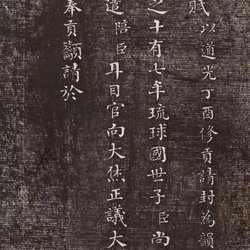 賦以道光丁酉修貢請封為韻
之十有七年琉球國世子臣尚
遣陪臣耳目官向大烋正議大
奉貢籲請於